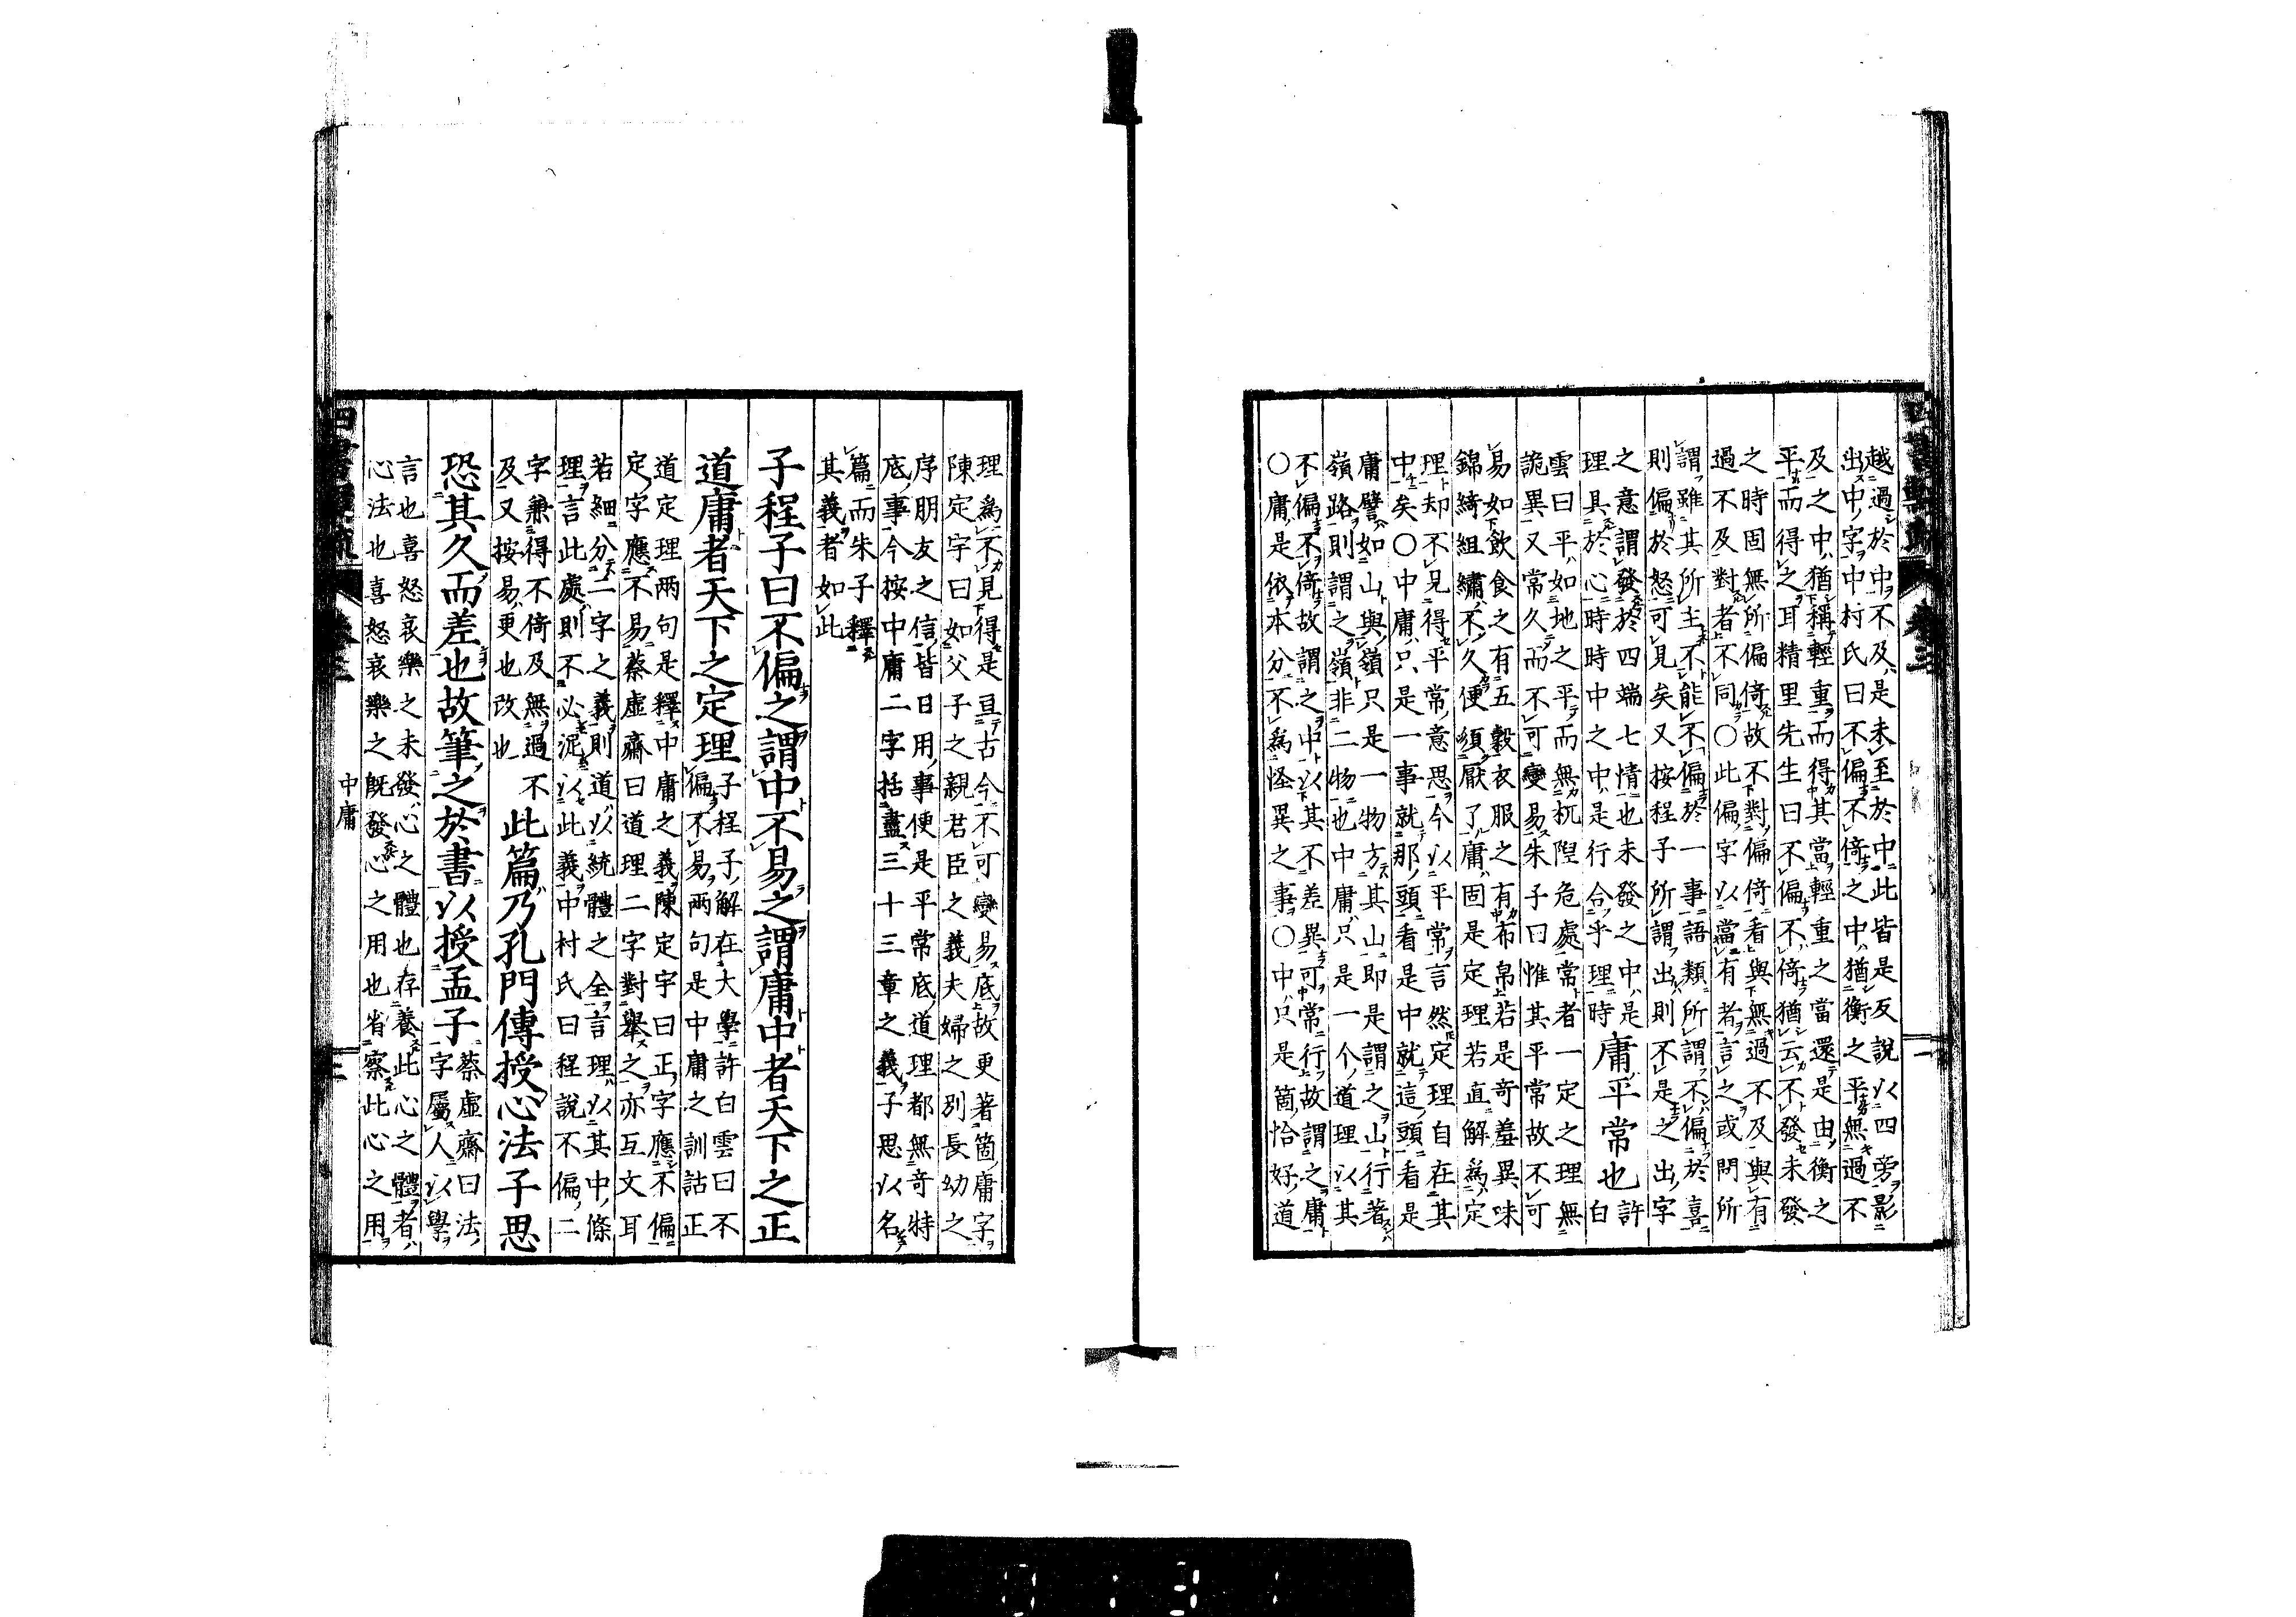 越過於中不及是未至於中此皆是反說以四旁影
出中字中村氏曰不偏不倚之中猶衡之平無過不
及之中猶稱輕重而得其當輕重之當還是由衡之
平而得之耳精里先生曰不偏不倚猶云不發未發
之時固無所偏倚故不對偏倚看與無過不及與有
過不及對者不同○此偏字以當有者言之或問所
謂雖其所主不能不偏於一事語類所謂不偏於喜
則偏於怒可見矣又按程子所謂出則不是之出字
之意謂發於四端七情也未發之中是
理具於心時時中之中是行合乎理時
庸平常也
許
白
雲曰平如地之平而無杌隉危處常者一定之理無
詭異又常久而不可變易朱子曰惟其平常故不可
易如飲食之有五穀衣服之有布帛若是奇羞異味
錦綺組繡不久便須厭了庸固是定理若直解為定
理却不見得平常意思今以平常言然定理自在其
中矣○中庸只是一事就那頭看是中就這頭看是
庸譬如山與嶺只是一物方其山即是謂之山行著
嶺路則謂之嶺非二物也中庸只是一个道理以其
不偏不倚故謂之中以其不差異可常行故謂之庸
○庸是依本分不為怪異之事○中只是箇恰好道
理為不見得是亘古今不可變易底故更著箇庸字
陳定宇曰如父子之親君臣之義夫婦之別長幼之
序朋友之信皆日用事便是平常底道理都無奇特
底事今按中庸二字括盡三十三章之義子思以名
篇而朱子釋
其義者如此
子程子曰不偏之謂中不易之謂庸中者天下之正
道庸者天下之定理
子程子解在大學許白雲曰不
偏不易兩句是中庸之訓詁正
道定理兩句是釋中庸之義陳定宇曰正字應不偏
定字應不易蔡虛齋曰道理二字對舉之亦互文耳
若細分二字之義則道以統體之全言理以其中條
理言此處則不必泥以此義中村氏曰程說不偏二
字兼得不倚及無過不
及又按易更也改也
此篇乃孔門傳授心法子思
恐其久而差也故筆之於書以授孟子
蔡虛齋曰法
字屬人以學
言也喜怒哀樂之未發心之體也存養此心之體者
心法也喜怒哀樂之既發心之用也省察此心之用
中庸
三